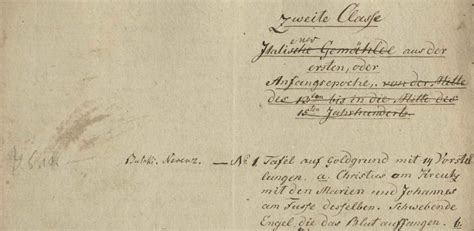 Zweite Classe
Italiener
Italische Gemählde aus der
ersten, oder
Anfangsepoche, von der Mitte
des 13ten bis in die Mitte des
15ten Jahrhunderts.
No 1 Tafel auf Goldgrund mit 14 Vorstel
lungen. a. Christus am Kreutz
mit den Marien und Johannes
am Fusse desselben. Schwebende
Engel die das Blut auffangen. b.